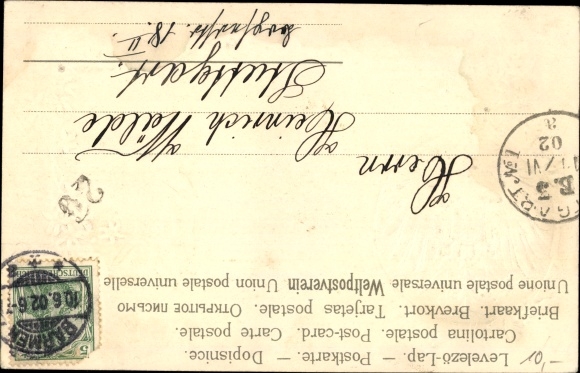 Levelező-Lap. – Postkarte. – Dopisnice.
Cartolina postale. Post-card. Carte postale.
Briefkaart. Brevkort. Tarjetas postale. Открытое письмо
Unione postale universale Weltpostverein Union postale universelle
Herrn
Heinrich Wälde
Stuttgart.
18 II.
BARMEN
10.6.02.6-7
DEUTSCHES REICH
5
02
B. 3
VI
a
20
10,-